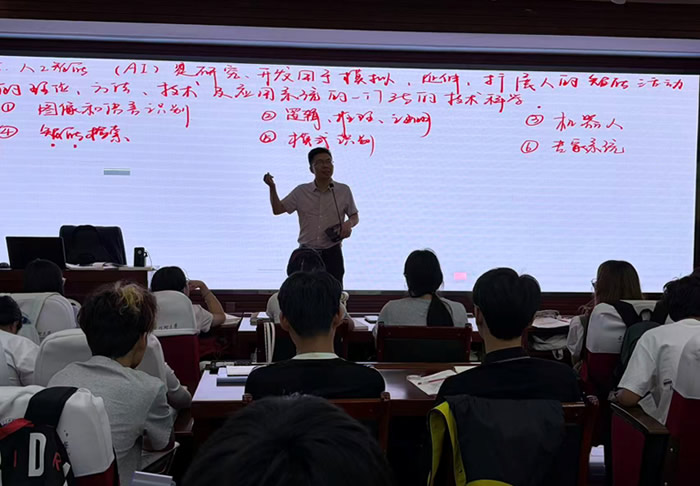 人工智能 (AI) 是研究、开发用于模拟、延伸、扩展人的智能活动
的理论、方法、技术及应用系统的一门新的技术科学.
① 图像和语言识别 ② 逻辑、推理、 ③ 机器人
④ 智能检索 ⑤ 模式识别 ⑥ 专家系统